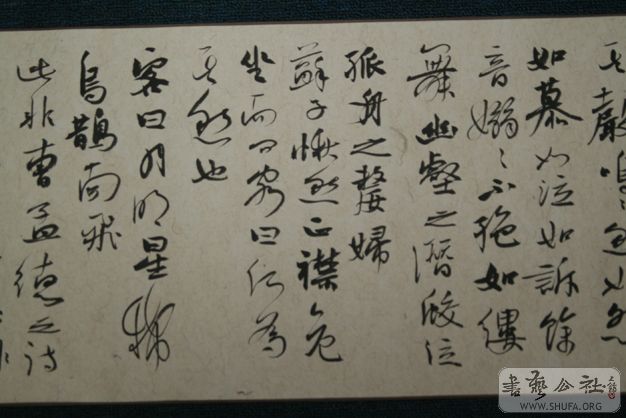 其聲嗚〻然如怨
如慕如泣如訴餘
音嫋〻不絕如縷
舞幽壑之潛蛟泣
孤舟之嫠婦
蘇子愀然正襟危
坐而問客曰何為
其然也
客曰月明星稀
烏鵲南飛
此非曹孟德之詩
書藝公社
WWW.SHUFA.ORG